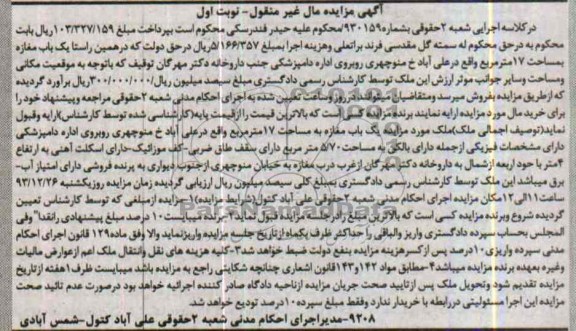 آگهی مزایده مال غیر منقول- نوبت اول
در کلاسه اجرایی شعبه ۲حقوقی بشماره۹۳۰۱۵۹ محکوم علیه حیدر فندرسکی محکوم است بپرداخت مبلغ ۱۰۳/۳۲۷/۱۵۹ریال بابت
محکوم به درحق محکوم له سمته گل مقدسی فرند براتعلی وهزینه اجرا بمبلغ ۵/۱۶۶/۳۵۷ریال درحق دولت که درهمین راستا یک باب مغازه
بمساحت ۱۷مترمربع واقع درعلی آباد خ منوچهری روبروی اداره دامپزشکی جنب داروخانه دکتر مهرگان توقیف که باتوجه به موقعیت مکانی
ومساحت وسایر جوانب موثر ارزش این ملک توسط کارشناس رسمی دادگستری مبلغ سیصد میلیون ریال/۳۰۰/۰۰۰/۰۰۰ریال برآورد گردیده
که ازطریق مزایده بفروش میرسد ومتقاضیان میتوانند درروز وساعت تعیین شده به اجرای احکام مدنی شعبه ۲حقوقی مراجعه وپیشنهاد خود را
برای خرید مال مورد مزایده ارایه نمایند برنده مزایده کسی است که بالاترین قیمت را ازقیمت پایه(کارشناسی شده توسط کارشناس)ارایه وقبول
نماید(توصیف اجمالی ملک)ملک مورد مزایده یک باب مغازه به مساحت ۱۷مترمربع واقع درعلی آباد خ منوچهری روبروی اداره دامپزشکی
دارای مشخصات فیزیکی ازجمله دارای بالکن به مساحت ۵/۷۰ متر مربع دارای سقف طاق ضربی-کف موزائیک-دارای اسکلت آهنی به ارتفاع
۴متر با حدود اربعه ازشمال به داروخانه دکتر مهرگان ازغرب درب مغازه به خیابان منوچهری ازجنوب دیواری به برنده فروشی دارای امتیاز آب-
برق میباشد این ملک توسط کارشناس رسمی دادگستری بمبلغ کلی سیصد میلیون ریال ارزیابی گردیده زمان مزایده روزیکشنبه ۹۳/۱۲/۲۶
ساعت۱۱الی۱۲مکان مزایده اجرای احکام مدنی شعبه ۲حقوقی علی آباد کتول(شرایط مزایده)۱-مزایده ازمبلغی که توسط کارشناس تعیین
گردیده شروع وبرنده مزایده کسی است که بالاترین قیمت را قبول نماید ۲-برنده میبایست ۱۰درصد مبلغ پیشنهادی رانقدا"وفی
المجلس بحساب سپرده دادگستری واریز والباقی را حداکثر ظرف یکماه ازتاریخ جلسه مزایده واریزنماید والا وفق ماده۱۲۹ قانون اجرای احکام
مدنی سپرده واریزی۱۰درصد پس ازکسرهزینه مزایده بنفع دولت ضبط خواهد شد۳-کلیه هزینه های نقل وانتقال ملک اعم ازعوارض مالیات
وغیره بعهده برنده مزایده میباشد۴-مطابق مواد ۱۴۲و۱۴۳قانون اشعاری چنانچه شکایتی راجع به مزایده باشد میبایست ظرف ۱هفته ازتاریخ
مزایده تقدیم شود وتحویل ملک پس ازتایید صحت جریان مزایده ازناحیه دادگاه صادر کننده اجرائیه خواهد بود درصورت عدم تائید صحت
مزایده این اجرا مسئولیتی دررابطه با خریدار ندارد وفقط مبلغ سپرده۱۰درصد تودیع خواهد شد.
۹۲۰۸-مدیراجرای احکام مدنی شعبه ۲حقوقی علی آباد کتول-شمس آبادی